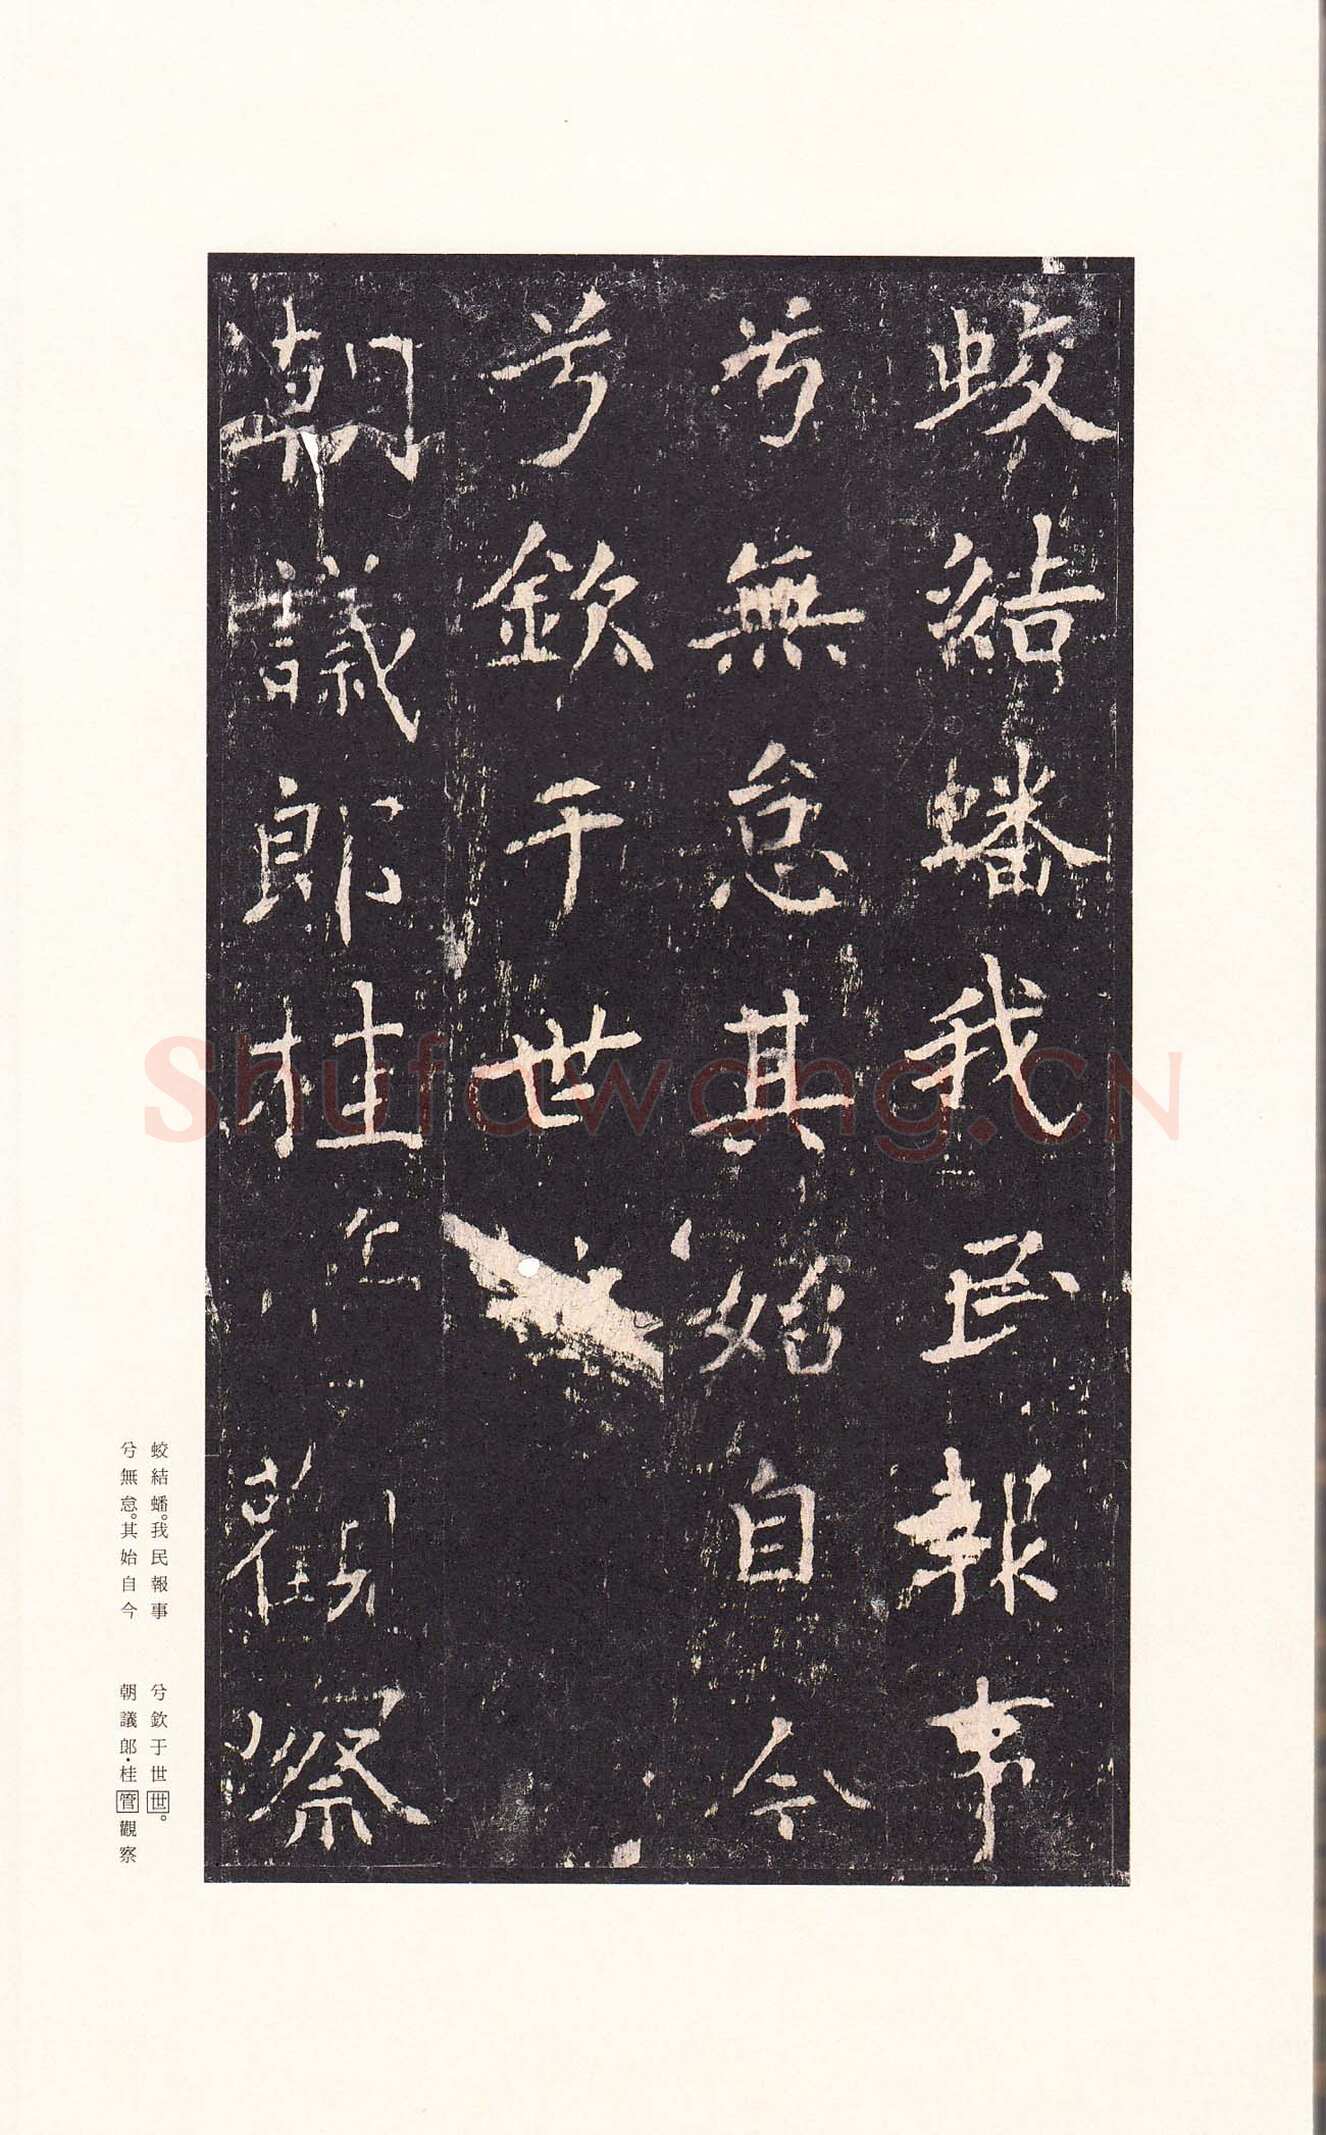 蛟結蟠我民報事
兮無怠其始自今
兮欽于世
朝議郎桂 觀察
蛟結蟠。我民報事
兮無怠。其始自今
兮欽于世世。
朝議郎·桂管觀察
Shufawang.CN